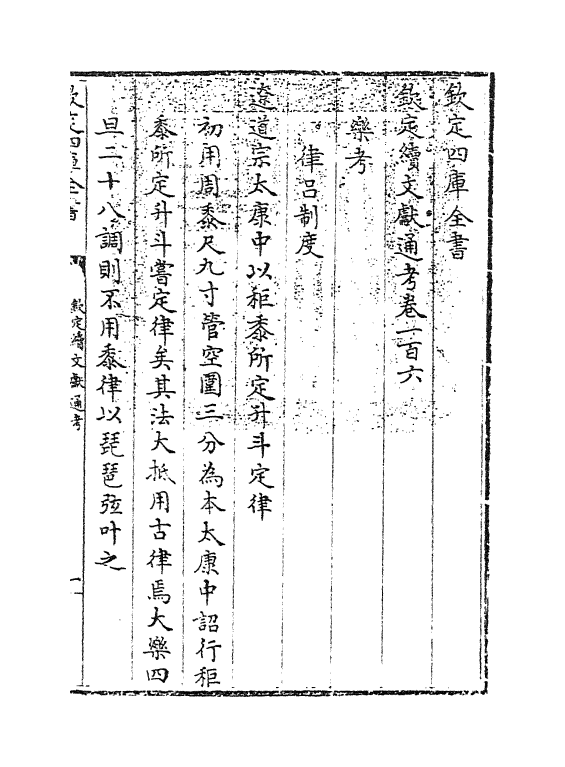 欽定四庫全書
欽定續文獻通考卷一百六
樂考
律呂制度
遼道宗太康中以秬黍所定升斗定律
初用周黍尺九寸管空圍三分為本太康中詔行秬
黍所定升斗嘗定律矣其法大抵用古律焉大樂四
旦二十八調則不用黍律以琵琶弦叶之
欽定四庫全書
欽定續文獻通考
一